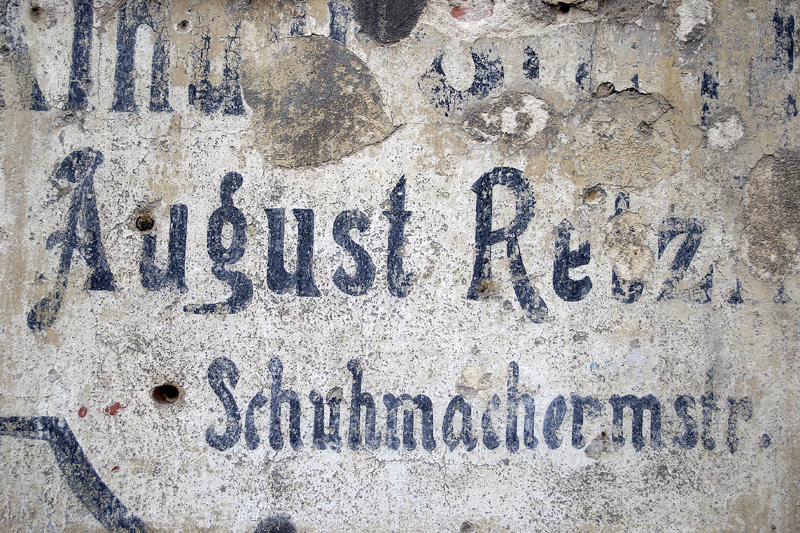 August Retz.
Schuhmachermstr.